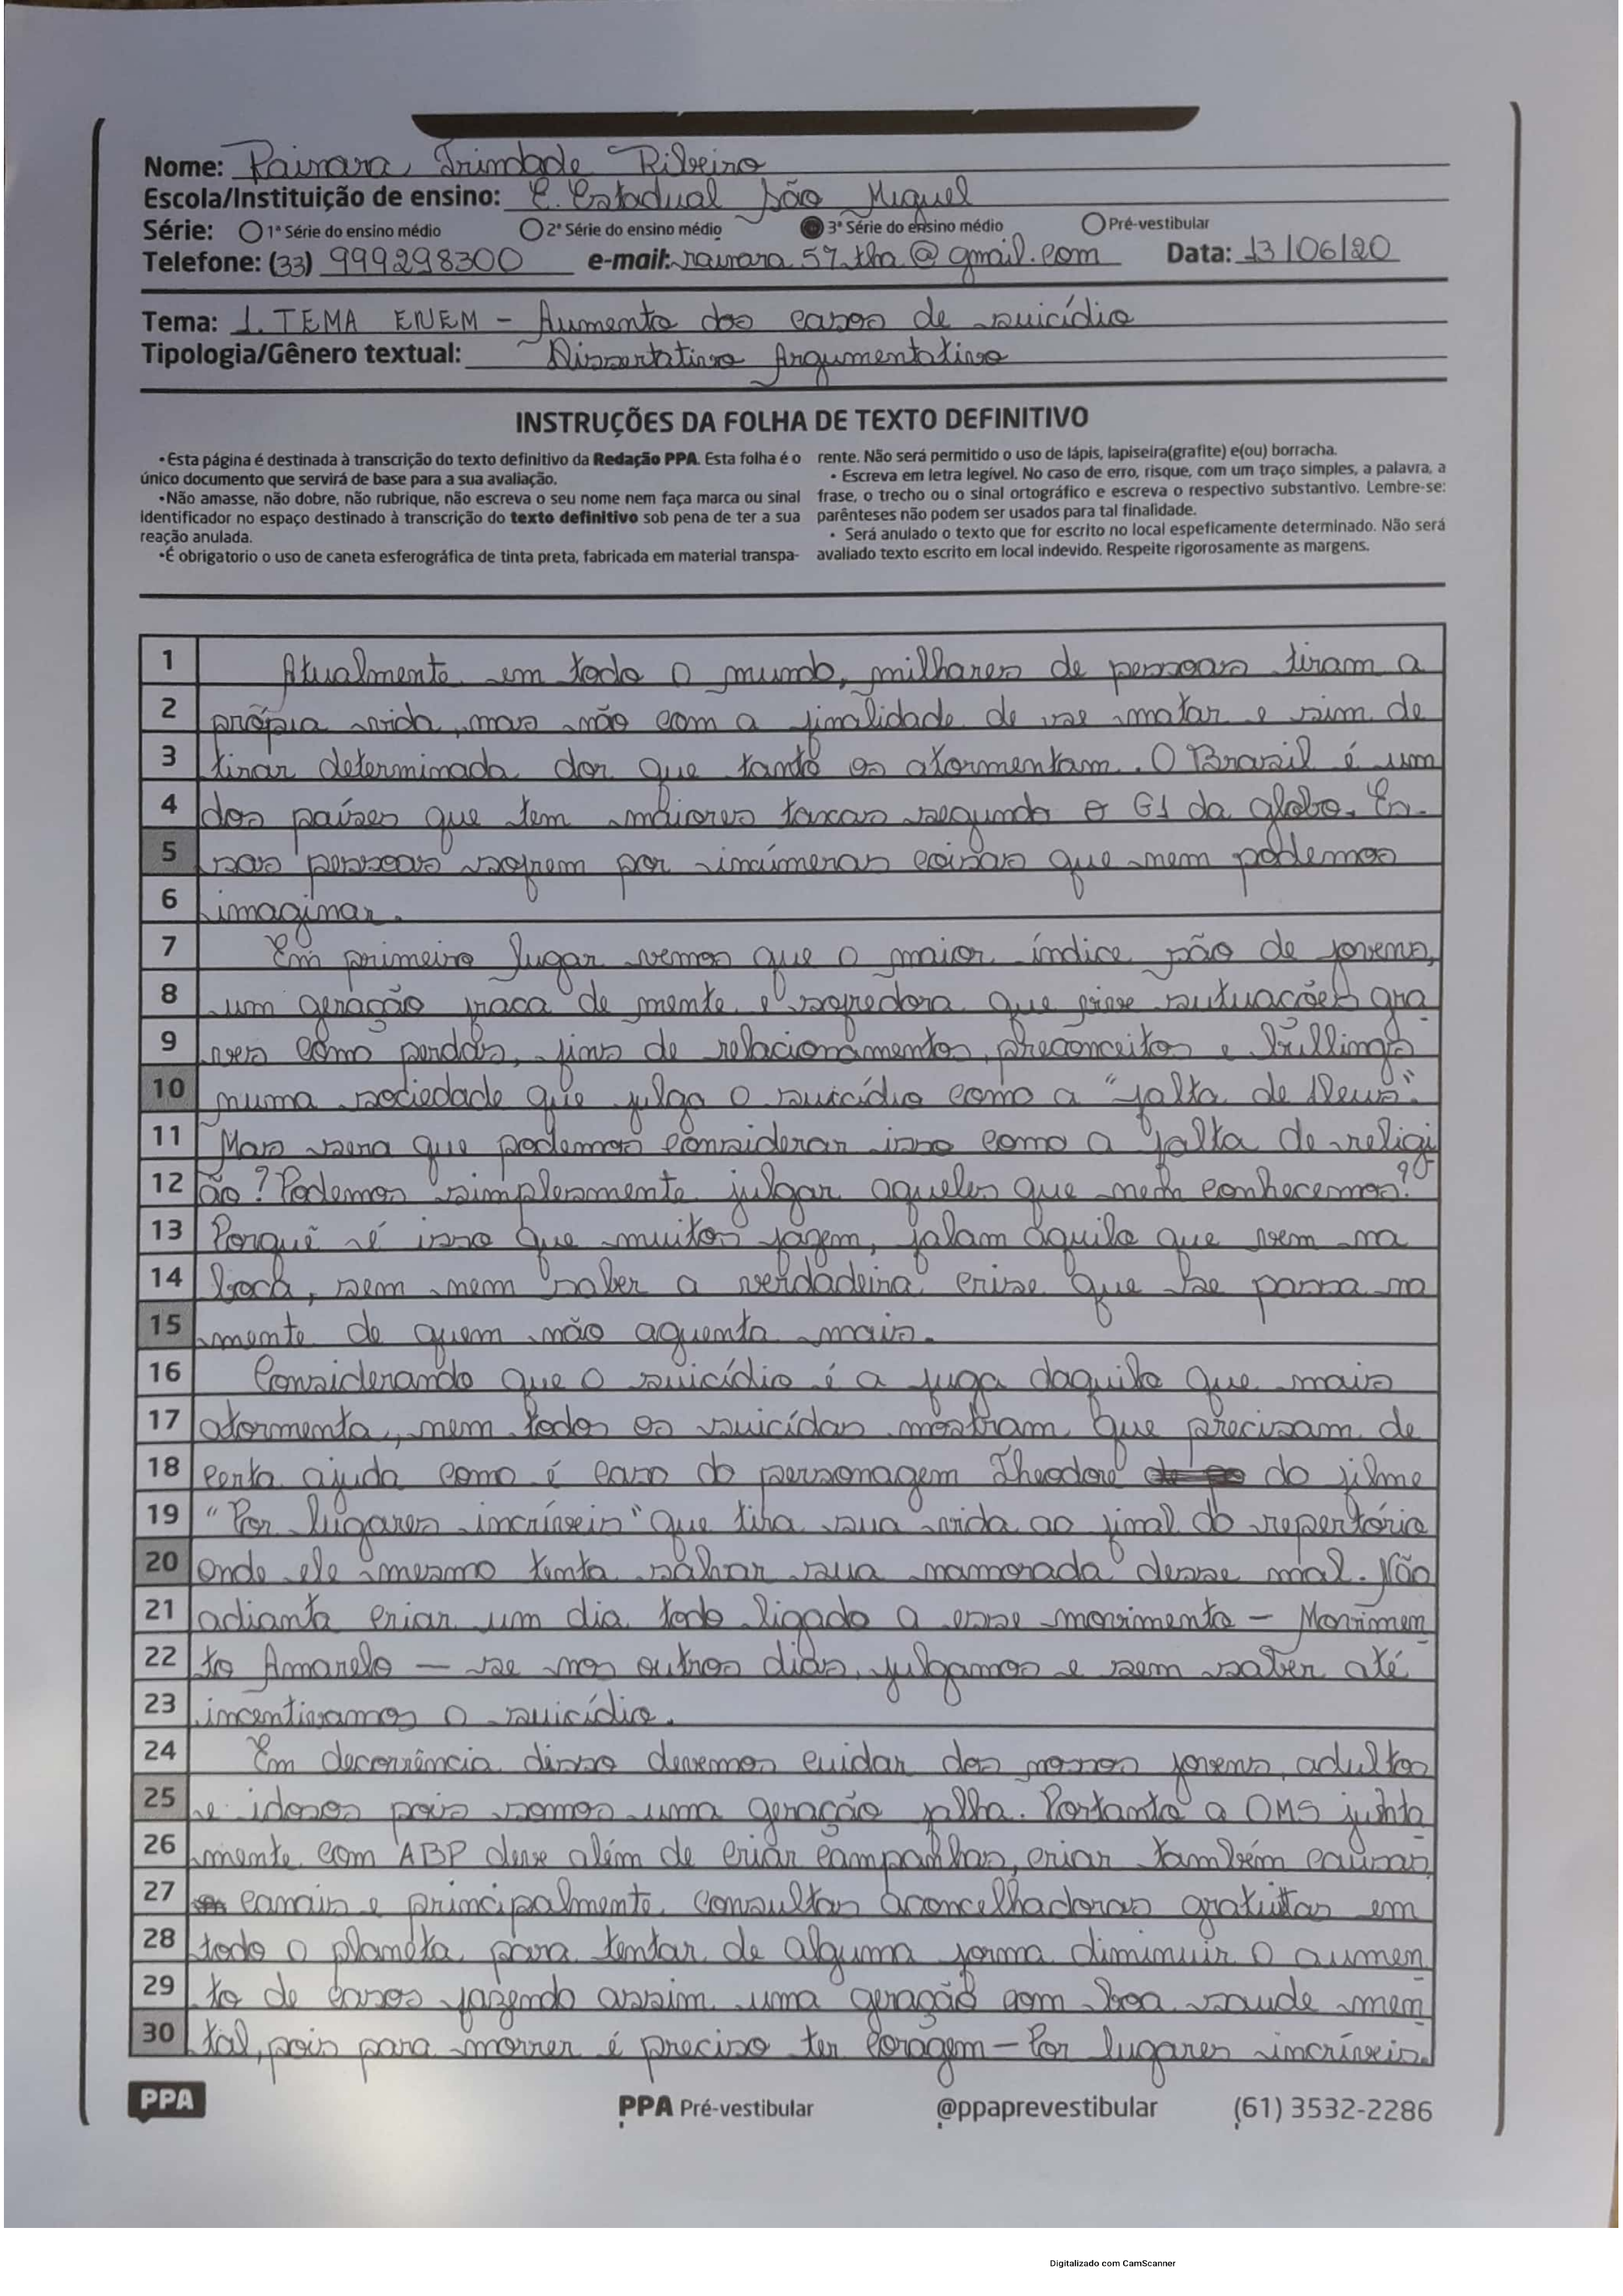 Nome: Rainara Trindade Ribeiro
Escola/Instituição de ensino: E. Estadual São Miguel
Série: 1ª Série do ensino médio 2ª Série do ensino médio 3ª Série do ensino médio Pré-vestibular
Telefone: (33) 999298300 e-mail: rainara57tha@gmail.com Data: 13/06/20
Tema: 1. TEMA ENEM - Aumento dos casos de suicídio
Tipologia/Gênero textual: Dissertativo Argumentativo
INSTRUÇÕES DA FOLHA DE TEXTO DEFINITIVO
• Esta página é destinada à transcrição do texto definitivo da Redação PPA. Esta folha é o
único documento que servirá de base para a sua avaliação.
•Não amasse, não dobre, não rubrique, não escreva o seu nome nem faça marca ou sinal
identificador no espaço destinado à transcrição do texto definitivo sob pena de ter a sua
reação anulada.
•É obrigatorio o uso de caneta esferográfica de tinta preta, fabricada em material transpa-
rente. Não será permitido o uso de lápis, lapiseira(grafite) e(ou) borracha.
• Escreva em letra legível. No caso de erro, risque, com um traço simples, a palavra, a
frase, o trecho ou o sinal ortográfico e escreva o respectivo substantivo. Lembre-se:
parênteses não podem ser usados para tal finalidade.
• Será anulado o texto que for escrito no local espeficamente determinado. Não será
avaliado texto escrito em local indevido. Respeite rigorosamente as margens.
1 Atualmente em todo o mundo, milhares de pessoas tiram a
2 própia vida, mas não com a finalidade de se matar e sim de
3 tirar determinada dor que tanto os atormentam. O Brasil é um
4 dos países que tem maiores taxas segundo o G1 da globo. Es-
5 sas pessoas sofrem por inúmeras coisas que nem podemos
6 imaginar.
7 Em primeiro lugar vemos que o maior índice são de jovens,
8 um geração fraca de mente e sofredora que vive situações gra
9 ves como perdas, fins de relacionamentos, preconceitos e bullings
10 numa sociedade que julga o suicídio como a "falta de Deus".
11 Mas sera que podemos considerar isso como a falta de religi
12 ão? Podemos simplesmente julgar aqueles que nem conhecemos?
13 Porquê é isso que muitos fazem, falam aquilo que vem na
14 boca, sem nem saber a verdadeira crise que se passa na
15 mente de quem não aguenta mais.
16 Considerando que o suicídio é a fuga daquilo que mais
17 atormenta, nem todos os suicídas mostram que precisam de
18 certa ajuda como é caso do personagem Theodore do filme
19 "Por lugares incríveis" que tira sua vida ao final do repertório
20 onde ele mesmo tenta salvar sua namorada desse mal. Não
21 adianta criar um dia todo ligado a esse movimento - Movimen
22 to Amarelo - se nos outros dias, julgamos e sem saber até
23 incentivamos o suicídio.
24 Em decorrência disso devemos cuidar dos nossos jovens, adultos
25 e idosos pois somos uma geração falha. Portanto a OMS junta
26 mente com ABP deve além de criar campanhas, criar também causas,
27 canais e principalmente consultas aconcelhadoras gratuitas em
28 todo o planeta para tentar de alguma forma diminuir o aumen
29 to de casos fazendo assim uma geração com boa saude men
30 tal, pois para morrer é preciso ter coragem - Por lugares incríveis.
PPA PPA Pré-vestibular @ppaprevestibular (61) 3532-2286
Digitalizado com CamScanner